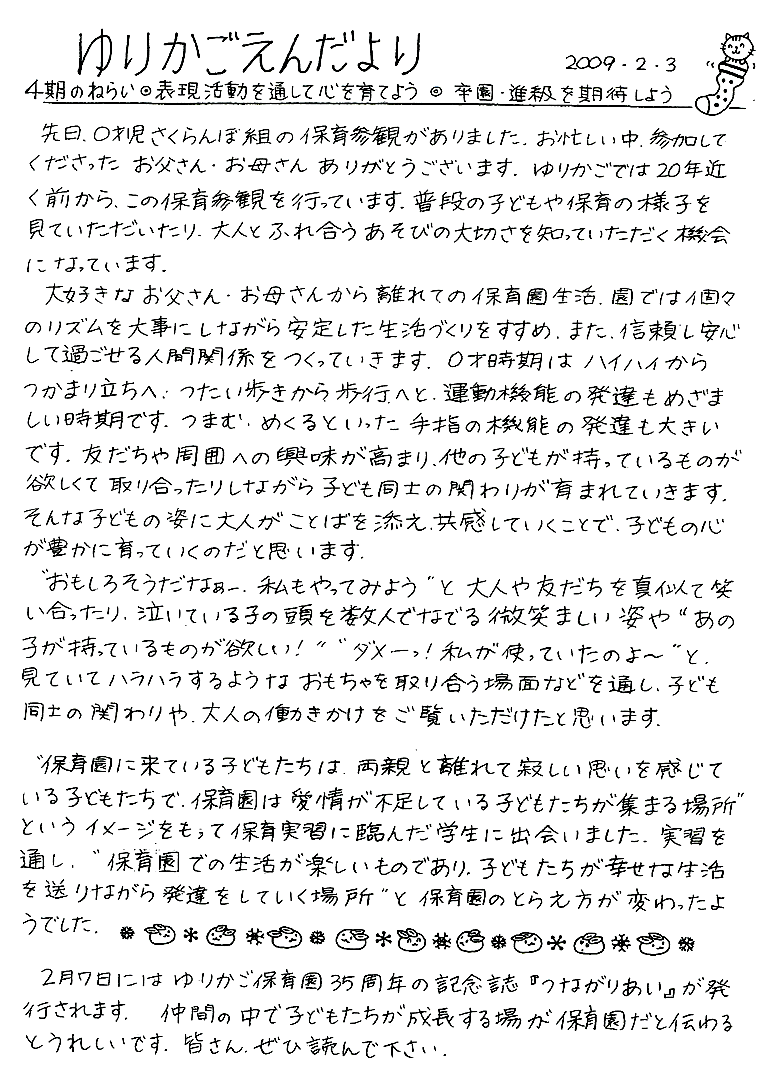 ゆりかごえんだより
2009・2・3
4期のねらい◎表現活動を通して心を育てよう ◎ 卒園・進級を期待しよう
先日、0才児さくらんぼ組の保育参観がありました。お忙しい中、参加して
くださった お父さん・お母さん ありがとうございます。ゆりかごでは20年近
く前から、この保育参観を行っています。普段の子どもや保育の様子を
見ていただいたり、大人とふれ合うあそびの大切さを知っていただく機会
になっています。
大好きな お父さん・お母さんから離れての保育園生活、園では個々
のリズムを大事にしながら安定した生活づくりをすすめ、また、信頼し安心
して過ごせる人間関係をつくっていきます。0才時期はハイハイから
つかまり立ちへ、つたい歩きから歩行へと、運動機能の発達もめざま
しい時期です。つまむ・めくるといった手指の機能の発達も大きい
です。友だちや周囲への興味が高まり、他の子どもが持っているものが
欲しくて取り合ったりしながら子ども同士の関わりが育まれていきます。
そんな子どもの姿に大人がことばを添え、共感していくことで、子どもの心
が豊かに育っていくのだと思います。
〝おもしろそうだなぁー、私もやってみよう〟と 大人や友だちを真似て笑
い合ったり、泣いている子の頭を数人でなでる微笑ましい姿や〝あの
子が持っているものが欲しい！〟〝ダメーっ！私が使っていたのよ～〟と、
見ていてハラハラするようなおもちゃを取り合う場面などを通し、子ども
同士の関わりや、大人の働きかけをご覧いただけたと思います。
〝保育園に来ている子どもたちは、両親と離れて寂しい思いを感じて
いる子どもたちで、保育園は愛情が不足している子どもたちが集まる場所〟
というイメージをもって保育実習に臨んだ学生に出会いました。実習を
通し、〝保育園での生活が楽しいものであり、子どもたちが幸せな生活
を送りながら発達をしていく場所〟と保育園のとらえ方が変わったよ
うでした。
2月7日にはゆりかご保育園35周年の記念誌『つながりあい』が発
行されます。 仲間の中で子どもたちが成長する場が保育園だと伝わる
とうれしいです。皆さん、ぜひ読んで下さい。